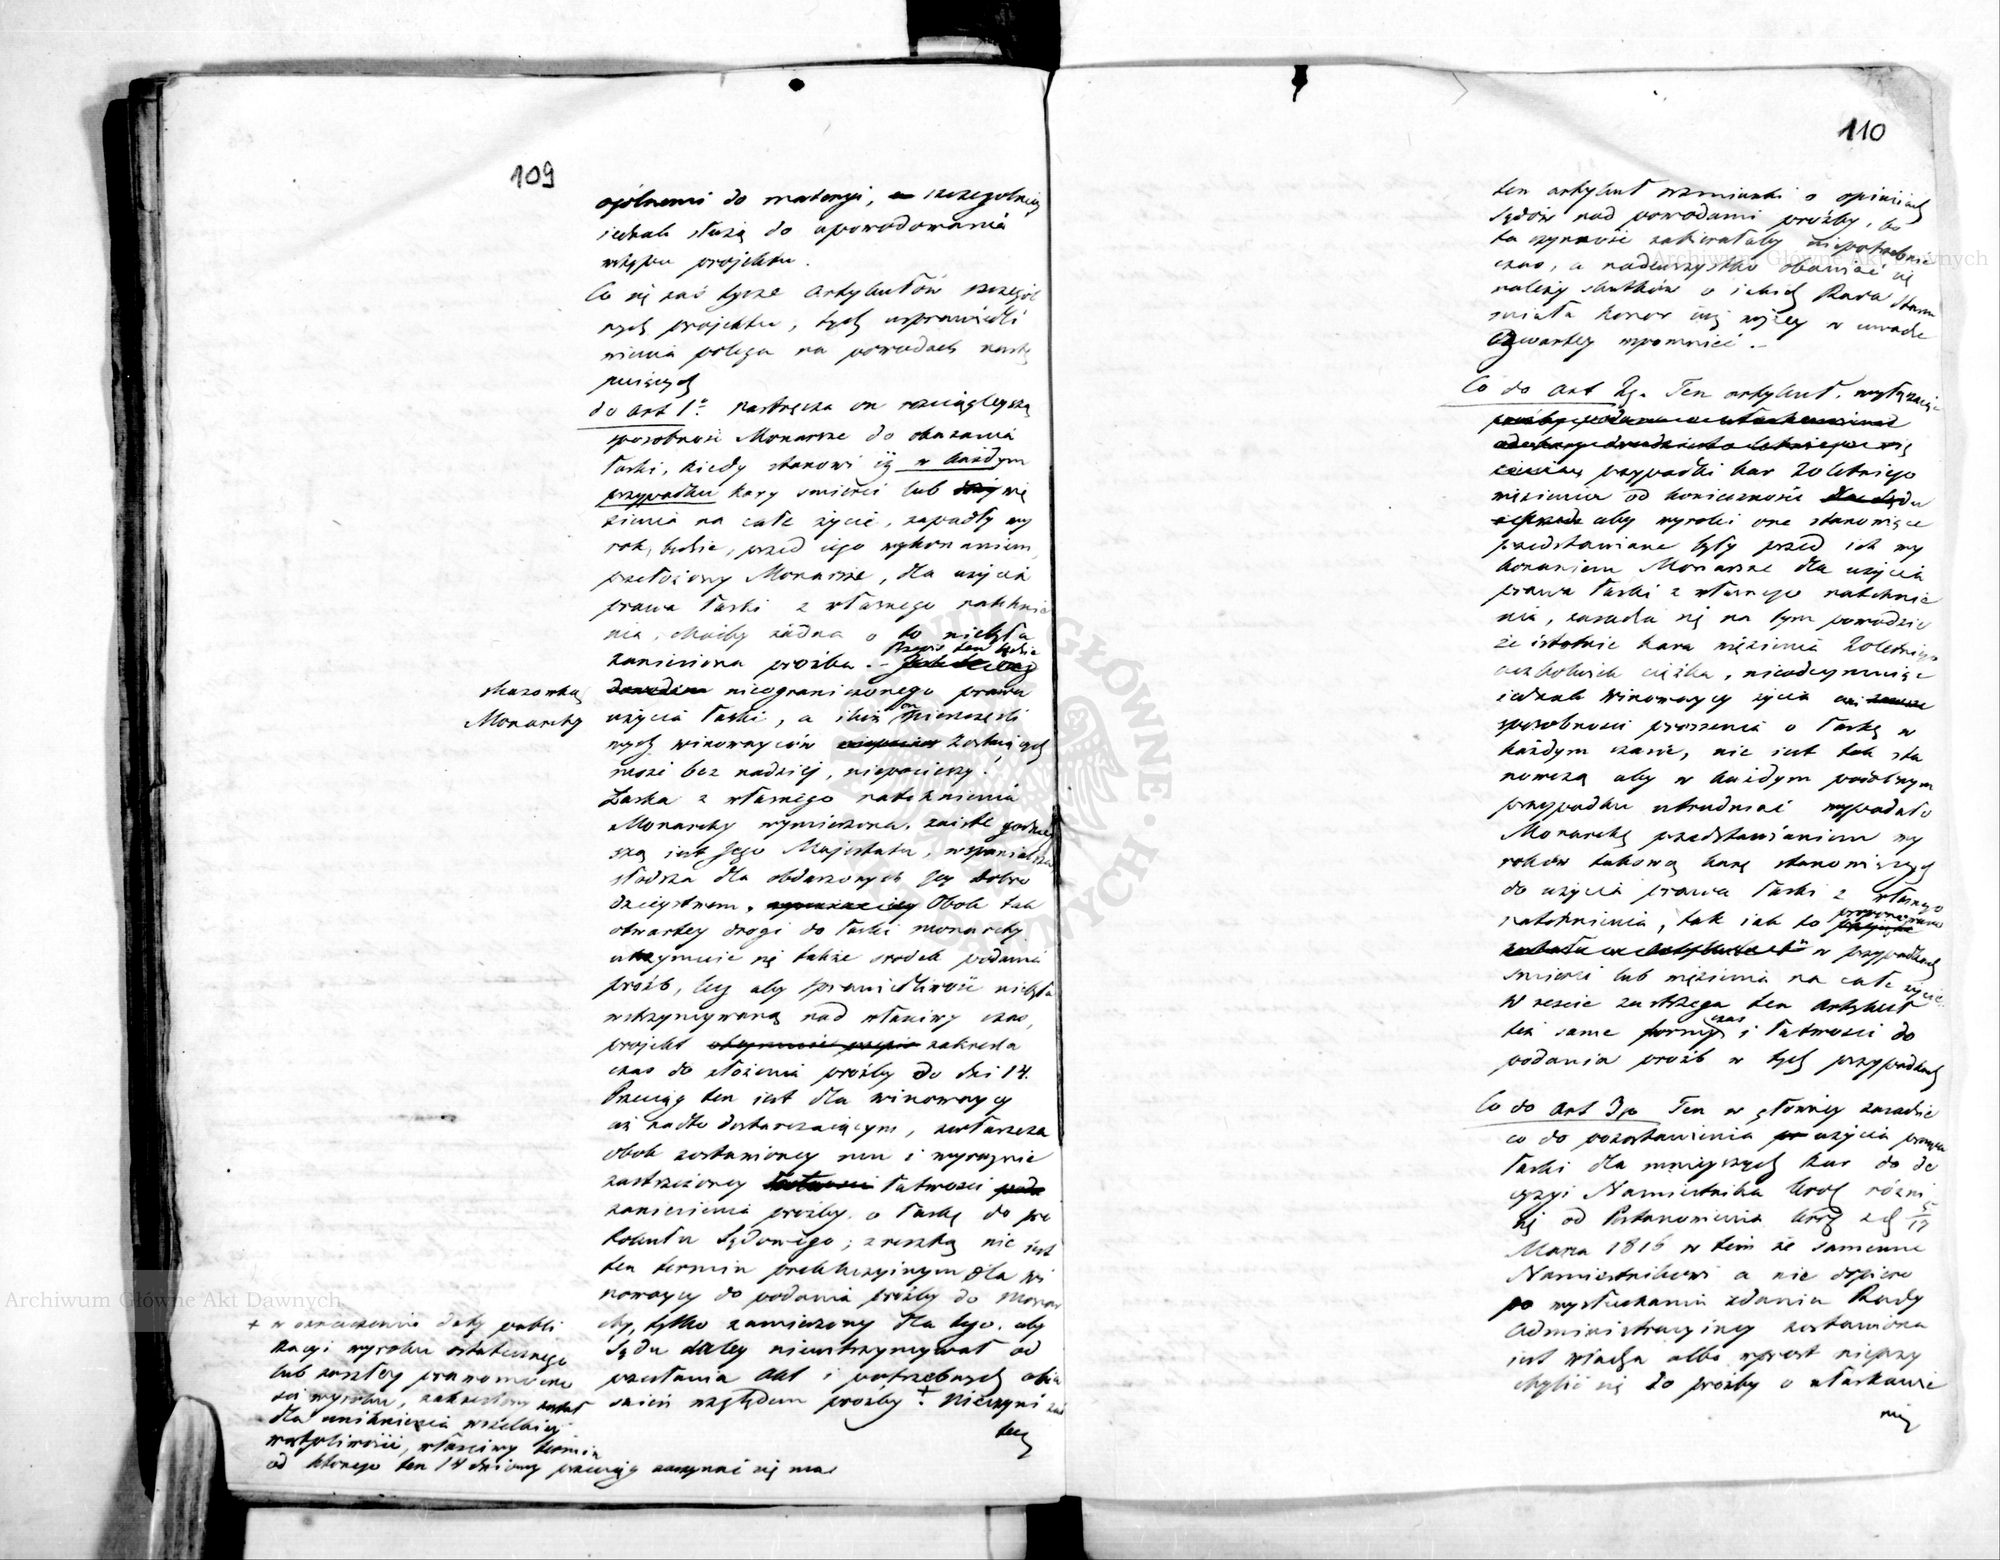 109
ogólnemi do materyi, szczególniej
jednak służą do upowodowania
wstępu projektu.
Co się zaś tycze artykułów szczegól
nych projektu, tych usprawiedli
wienia polega na powodach nastę
pujących
do art 1o nastręcza on rozciąglejszą
sposobność Monarsze do okazania
łaski, kiedy stanowi iż w każdym
przypadku kary smierci lub wię
zienia na całe życie, zapadły wy
rok, będzie, przed jego wykonaniem
przełożony Monarsze, dla użycia
prawa łaski z własnego natchnie
nia, choćby żadna o to niebyła
zaniesiona prośba. - Przepis ten będzie
skazówką nieograniczonego prawa
Monarchy użycia łaski, a iluż on nieszczęśli
wych winowayców zostających
może bez nadziei, niepocieszy!
Łaska z własnego natchnienia
Monarchy wymierzona, zaiste godniey
szą jest Jego Majestatu, wspanialsza
słodsza dla obdarzonych Jey dobro
dzieystwem. Obok tak
otwartey drogi do łaski monarchy
utrzymuie się także srodek podania
próśb, lecz aby sprawiedliwość niebyła
wstrzymywaną nad właściwy czas,
projekt zakreśla
czas do złożenia prośby do dni 14.
Przeciąg ten jest dla winowaycy
aż nadto dostarczającym, zwłaszcza
obok zostawioney mu i wyraznie
zastrzeżoney łatwości
zaniesienia prośby o łaskę do pro
tokułu Sądowego; zresztą nie jest
ten termin prekluzyinym dla wi
nowaycy do podania prośby do Monar
chy, tylko zamierzony dla tego, aby
Sądu daley niewstrzymywał od
przesłania Akt i potrzebnych obia
snień względem prośby + Nieczyni zaś
ten
+ w oznaczeniu daty publi
kacyi wyroku ostatecznego
lub zaszłey prawomocno
sci wyroku, zakreślony został
dla uniknienia wszelkiey
wątpliwości, właściwy termin
od którego ten 14 dniowy przeciąg zaczynać się ma
110
ten artykuł wzmianki o opiniach
Sądów nad powodami prośby, bo
ta czynność zabierałaby niepotrzebnie
czas, a nadewszystko obawiać się
należy skutków o jakich Rada Stanu
miała honor iuż wyżey w uwadze
czwartey wspomnieć. -
Co do art 2go Ten artykuł, wyłączając
przypadki kar 20 letniego
więzienia od konieczności
aby wyroki one stanowiące
przedstawiane były przed ich wy
konaniem Monarsze dla użycia
prawa łaski z własnego natchnie
nia, zasadza się na tym powodzie
że istotnie kara więzienia 20 letniego
aczkolwiek ciężka, nieodeymuiąc
jednak winowaycy życia ani
sposobności proszenia o łaskę w
każdym czasie, nie jest tak sta
nowczą aby w każdym podobnym
przypadku utrudniać wypadało
Monarchę przedstawianiem wy
roków takową karę stanowiących
do użycia prawa łaski z własnego
natchnienia, tak iak to proponowano
w przypadkach
smierci lub więzienia na całe życie.
W reszcie zastrzega ten Artykuł
też same formy, czas i łatwości do
podania próśb w tych przypadkach
Co do art 3go Ten w główney zasadzie
co do pozostawienia użycia prawa
łaski dla mnieyszych kar do de
cyzyi Namiestnika Król różni
się od Postanowienia Król z d 5/17
Marca 1816 w tem że samemu
Namiestnikowi a nie dopiero
po wysłuchaniu zdania Rady
Administracyiney zostawiona
jest władza albo wprost nieprzy
chylić się do prośby o ułaskawie
nie
Archiwum Główne Akt Dawnych
Archiwum Główne Akt Dawnych
ARCHIWUM GŁÓWNE AKT DAWNYCH